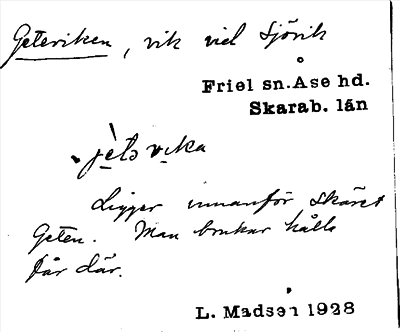 Geteviken, vik vid Sjövik
Friel sn. Åse hd.
Skarab. län
jè̱tɔvi̱ka
Ligger innanför skäret
Geten. Man brukar hålla
får där.
L. Madsén 1928